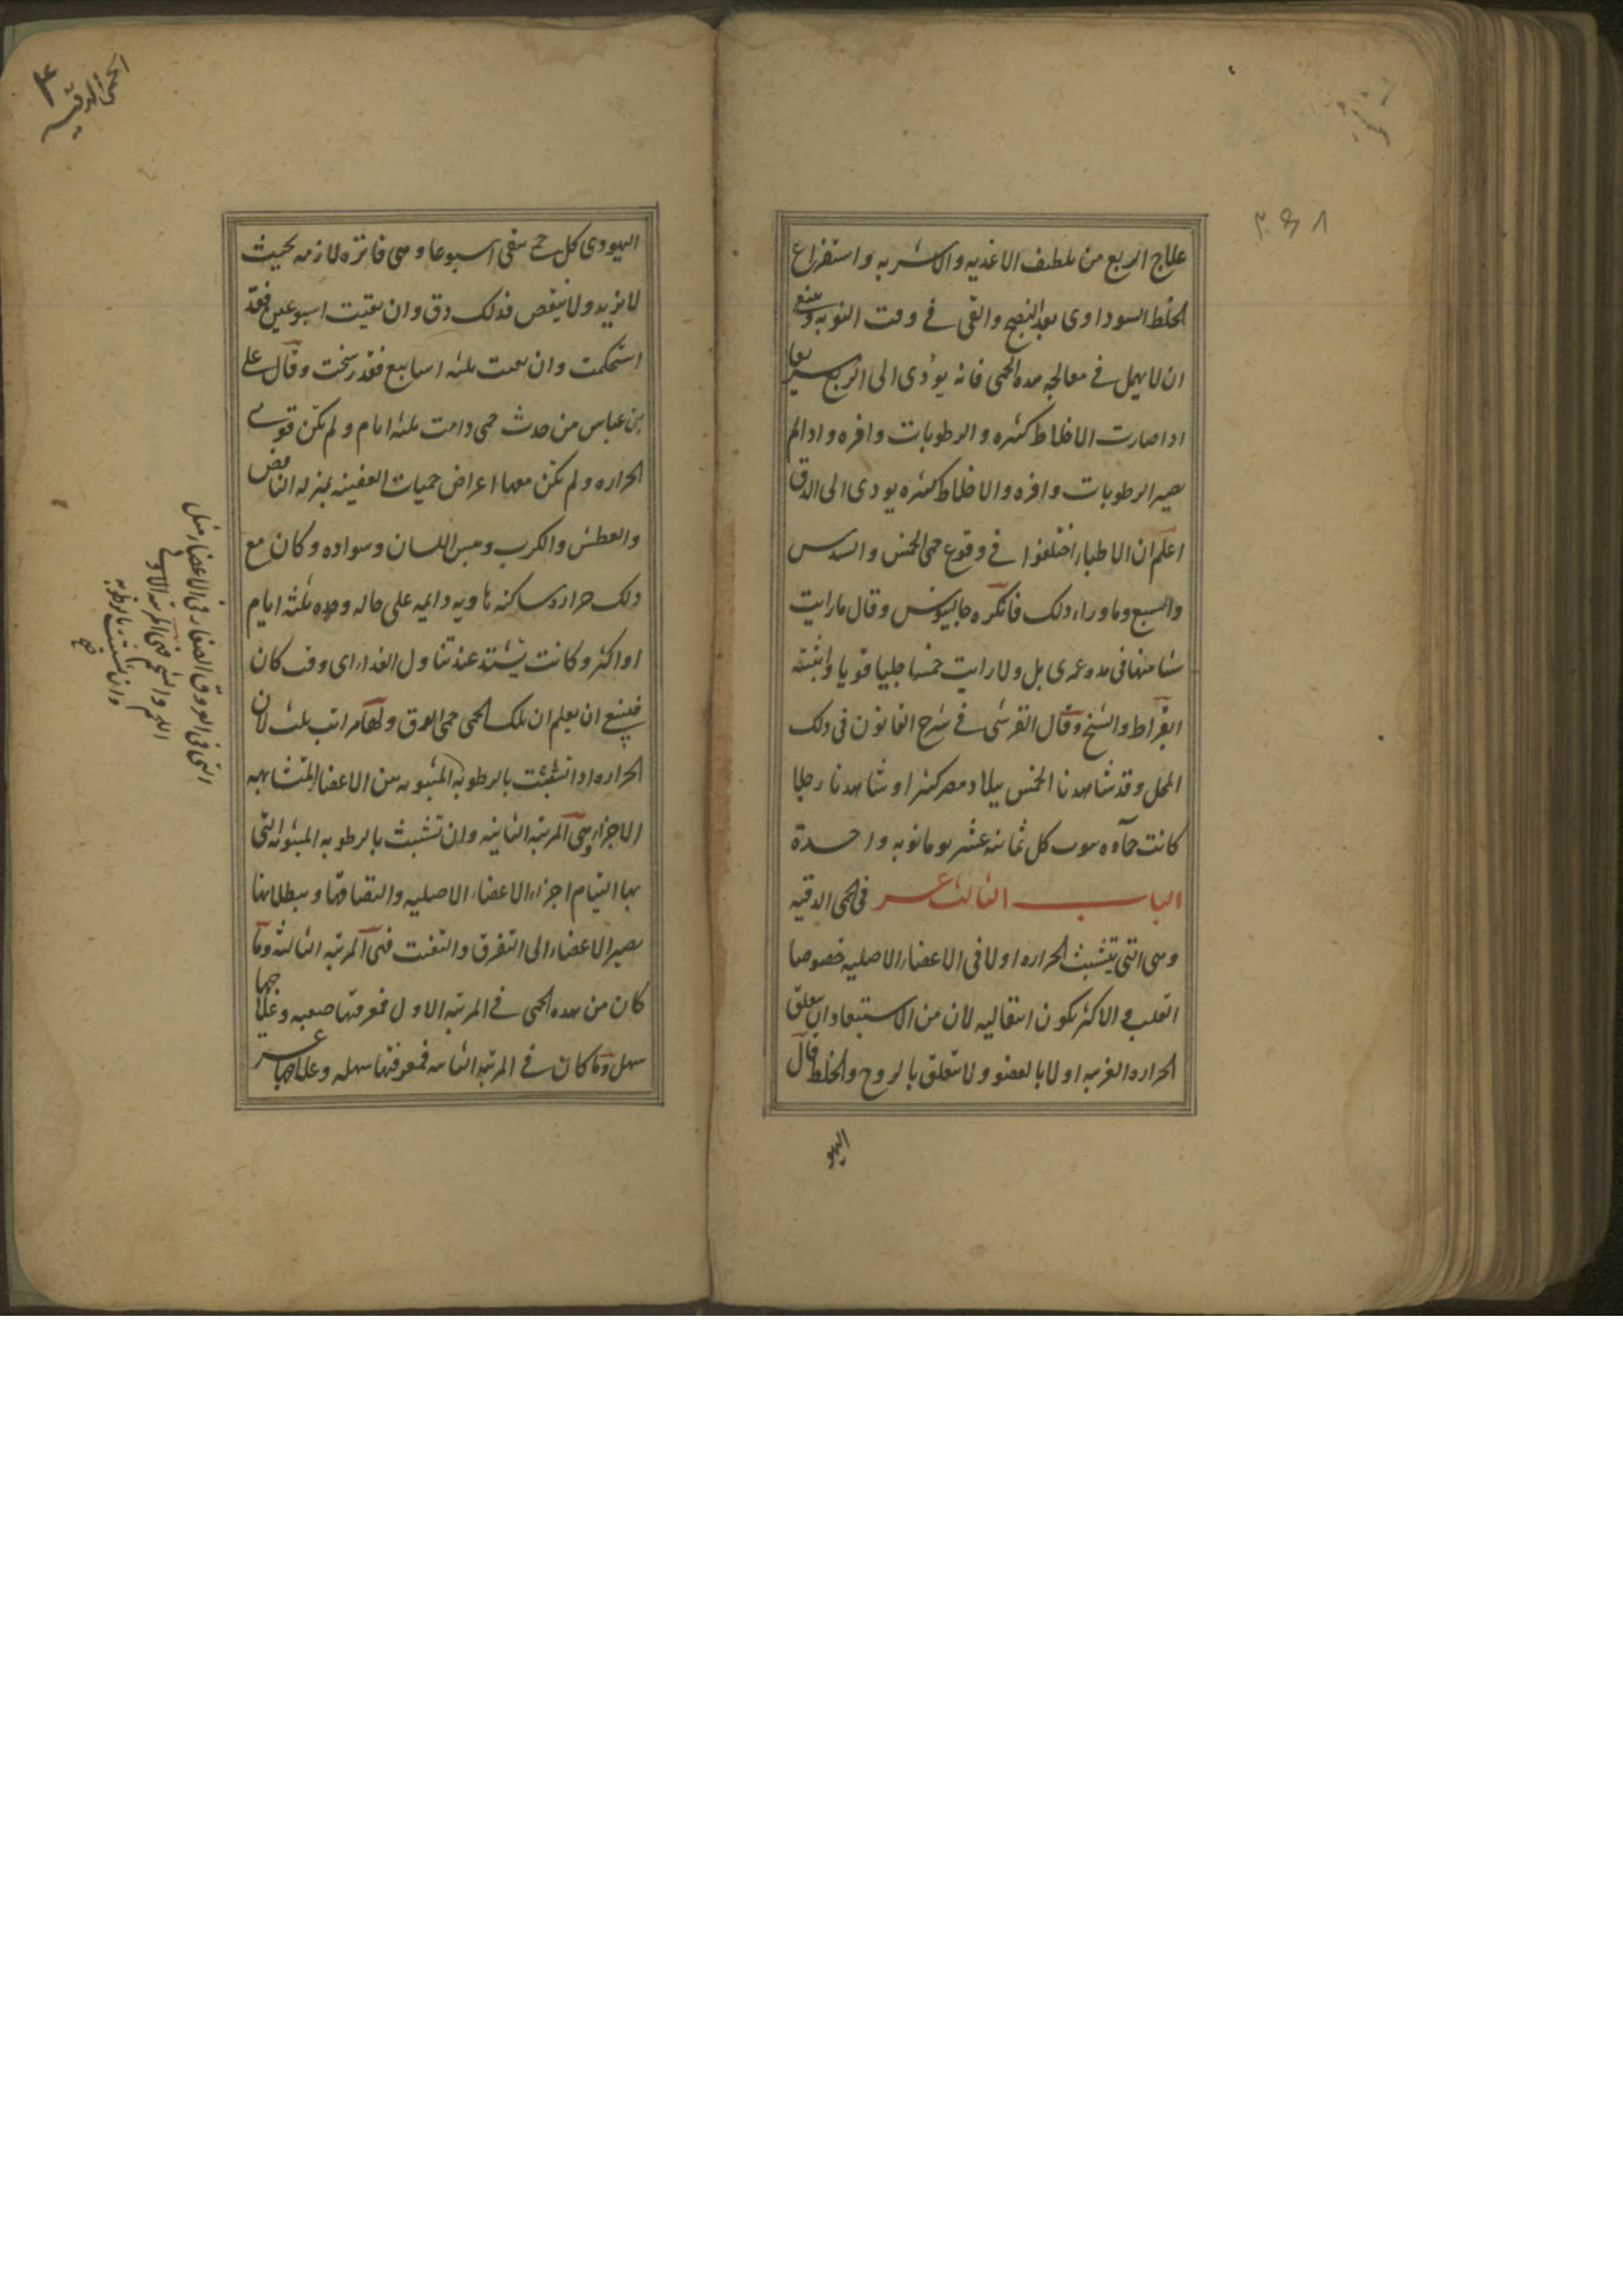 علاج الربع من تلطيف الاغذيه والاشربه واستفراغ
الخلط السوداوى بعد النضج والقى فى وقت النوبه وينبغى
ان لا يهمل فى معالجه هذه الحمى فانه يؤدى الى الربع سريعا
اذا صارت الاخلاط كثيره والرطوبات وافره واذا لم
يصير الرطوبات وافره والاخلاط كثيره يودى الى الدق
اعلم ان الاطباء اختلفوا فى وقوع حمى الخمس والسدس
والسبع وما وراء ذلك فانكره جالينوس وقال ما رايت
شيا منها فى مده عمرى بل ولا رايت خمسا جليا قويا واثبته
ابقراط والشيخ وقال القرشى فى شرح القانون فى ذلك
المحل وقد شاهدنا الخمس ببلاد مصر كثيرا وشاهدنا رجلا
كانت حماه تنوب كل ثمانيه عشر يوما نوبه واحدة
الباب الثالث عشر فى الحمى الدقيه
وهى التى يتشبث الحراره اولا فى الاعضاء الاصليه خصوصا
القلب والاكثر يكون انتقاليه لان من الاستبعاد ان يتعلق
الحراره الغريبه اولا بالعضو ولا يتعلق بالروح والخلط قال
اليهو
٣
الحمى الدقيه
اليهودى كل حمى تبقى اسبوعا وهى فاتره لازمه بحيث
لا يزيد ولا ينقص فذلك دق وان بقيت اسبوعين فقد
استحكمت وان بقيت ثلثه اسابيع فقد رسخت وقال على
بن عباس من حدث حمى دامت ثلثه ايام ولم تكن قوى
الحراره ولم تكن معها اعراض حميات العفنيه بمنزله النافض
والعطش والكرب ويبس اللسان وسواده وكان مع
ذلك حراره ساكنه هاديه دايمه على حاله وحده ثلثه ايام
او اكثر وكانت تشتد عند تناول الغذاء اى وقت كان
فينبغى ان يعلم ان تلك الحمى حمى الدق ولها مراتب ثلث لان
الحراره اذا تشبثت بالرطوبه المبثوثه من الاعضاء المتشابهه
الاجزاء وهى المرتبه الثانيه وان تشبث بالرطوبه المبثوثه التى
بها التيام اجزاء الاعضاء الاصليه والتصاقها وببطلانها
يصير الاعضاء الى التفرق والتفتت فهى المرتبه الثالثه وما
كان من هذه الحمى فى المرتبه الاول فمعرفتها صعبه وعلاجها
سهل وما كان فى المرتبه الثانيه فمعرفتها سهله وعلاجها عسر
التى فى العروق الصغار فى الاعضاء مثل
اللحم والشحم فهى المرتبه الاولى
وان تشبثت بالرطوبه
صح